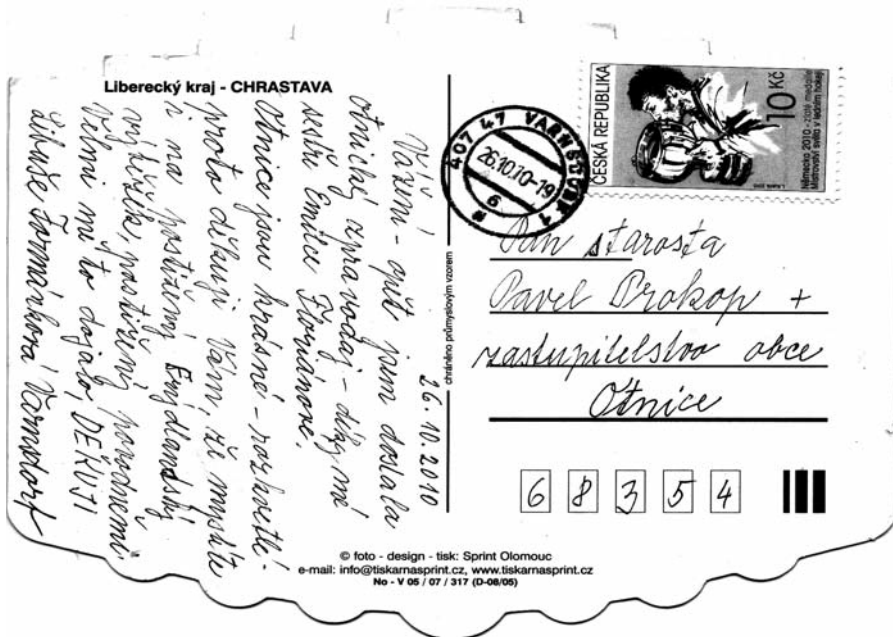 Liberecký kraj - CHRASTAVA
26. 10. 2010
Vážení - opět jsem dostala
otnický zpravodaj - díky mé
sestře Emilce Floriánové.
Otnice jsou krásné - rozkvetlé -
proto děkuji Vám, že myslíte
i na postižený
výběžek, postižený povodněmi.
Velmi mi to dojalo, DĚKUJI
Libuše Formánková, Varnsdorf
chráněno průmyslovým vzorem
407 47 VARNSDORF 1
26.10.10-19
6
ČESKÁ REPUBLIKA
10 Kč
Německo 2010 - zlaté medaile
Mistrovství světa v ledním hokeji
Pan starosta
Pavel Prokop +
zastupitelstvo obce
Otnice
6 8 3 5 4
© foto - design - tisk: Sprint Olomouc
e-mail: info@tiskarnasprint.cz, www.tiskarnasprint.cz
No - V 05 / 07 / 317 (D-08/05)